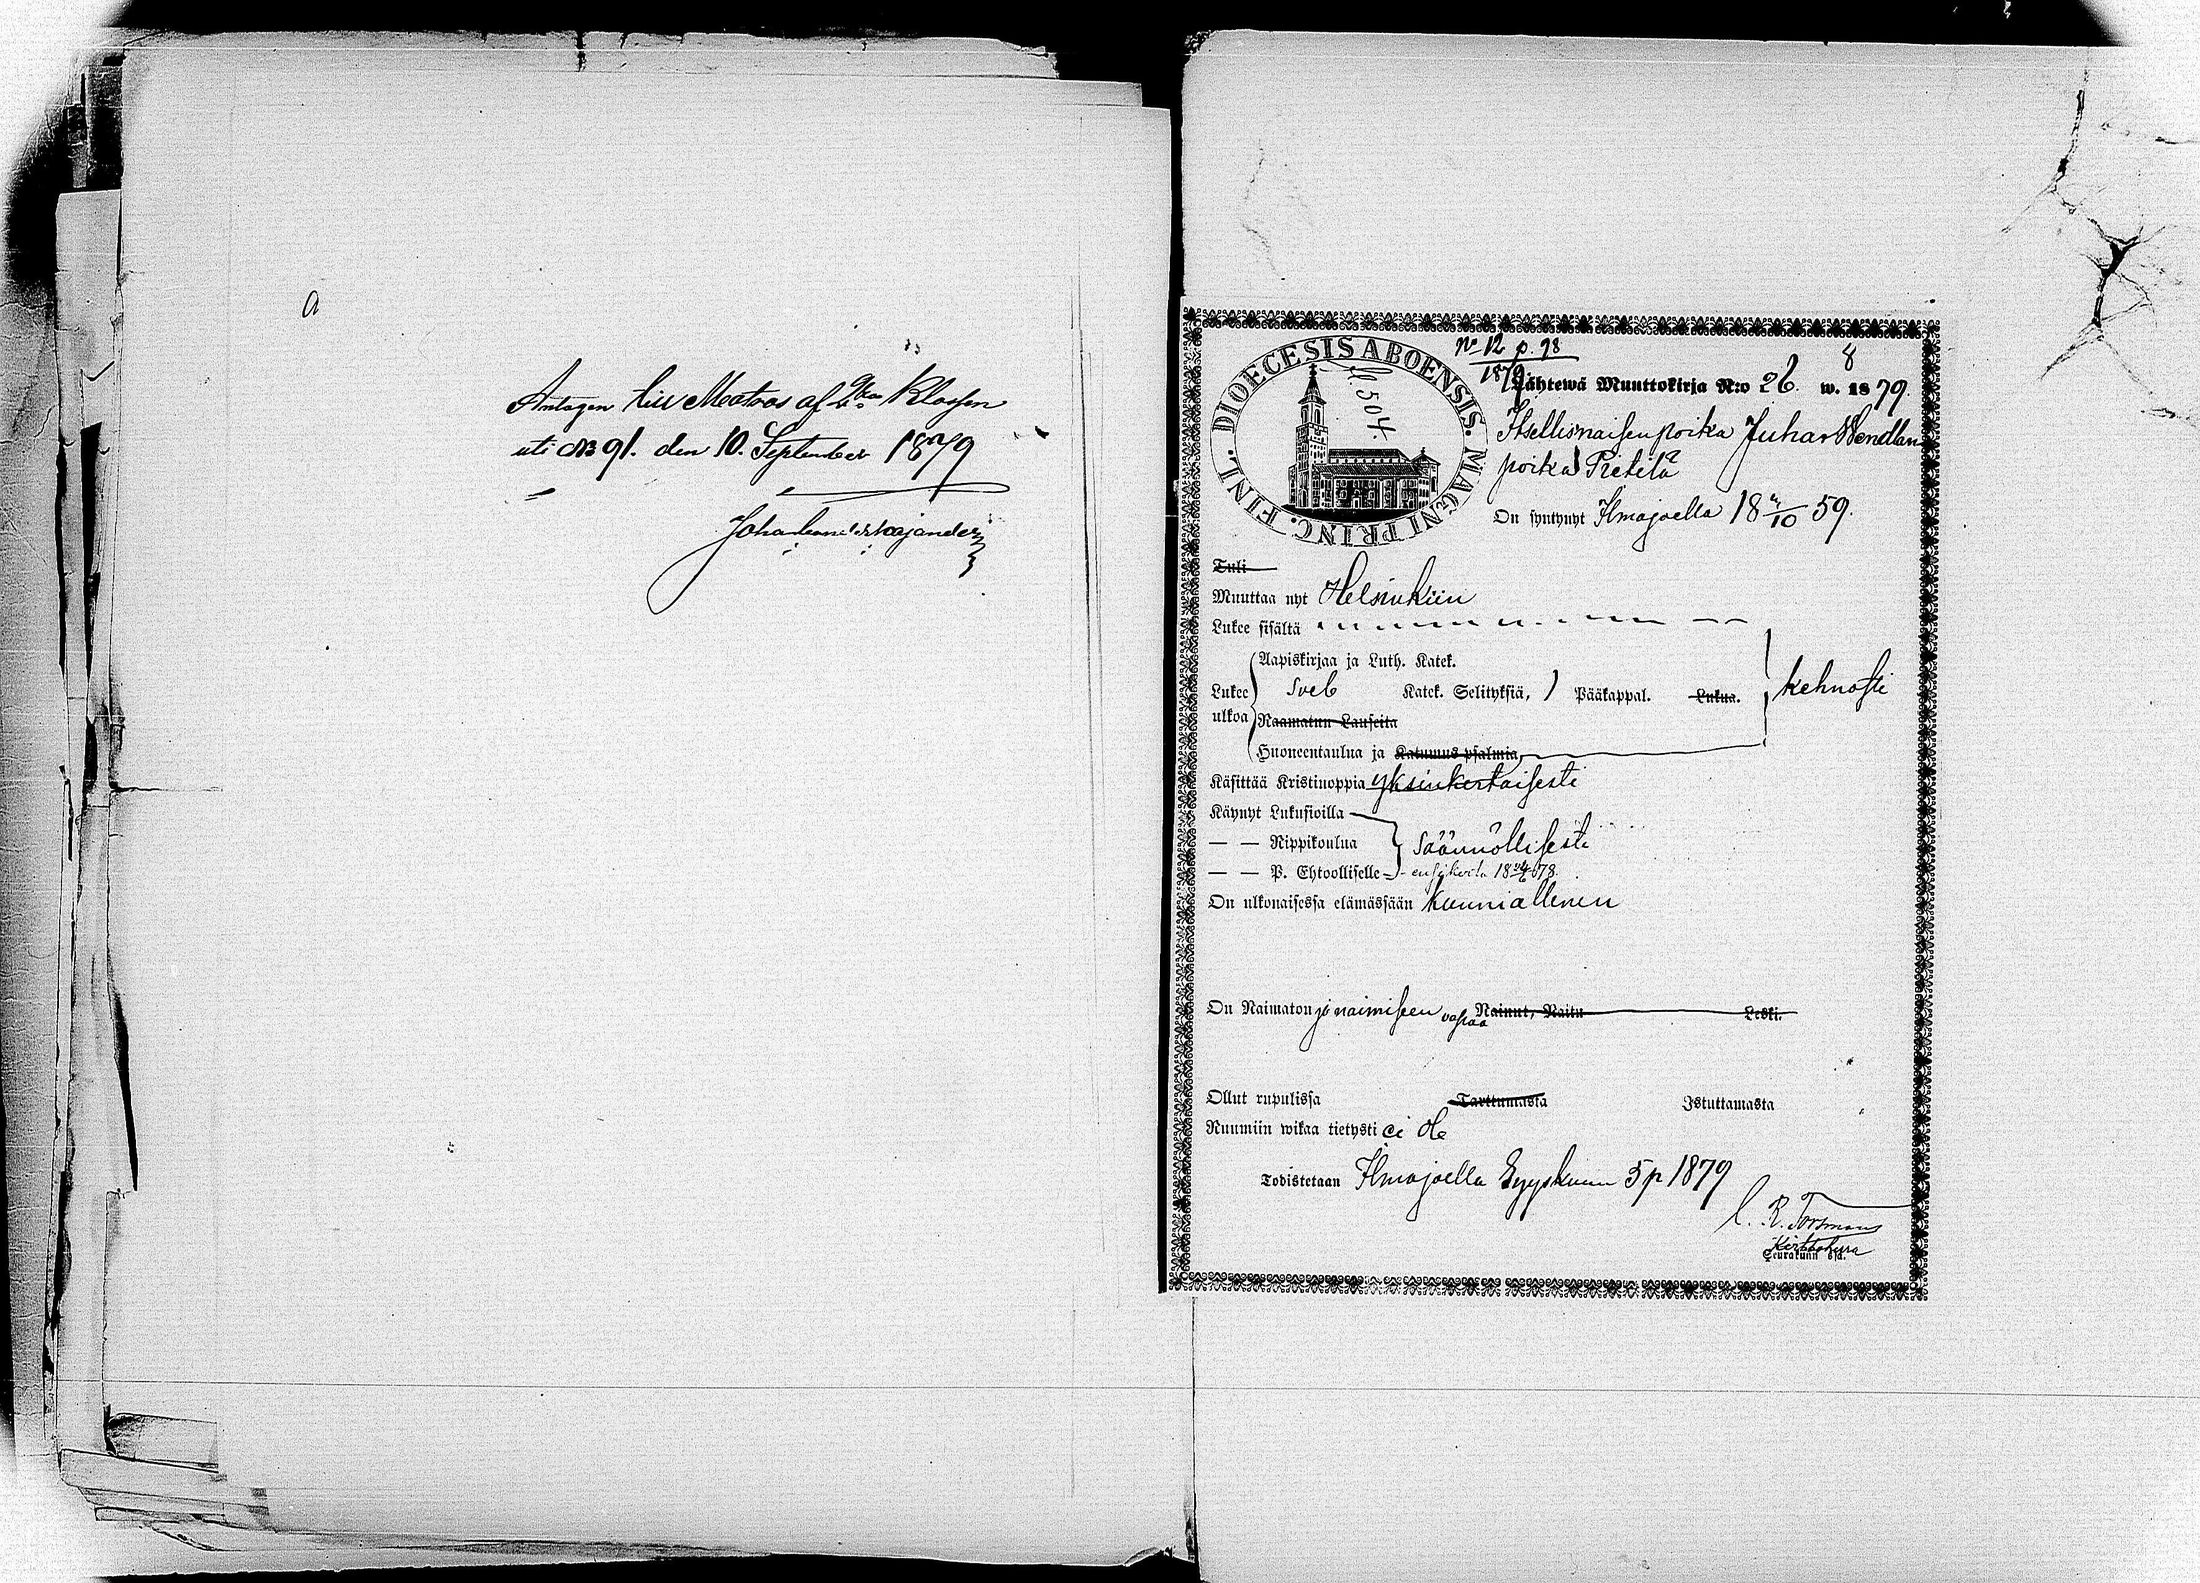 a
Antagen till Matros af 2dra Klassen
uti No 91. den 10. September 1879
No 12 p. 98
1879
8
DIOECESIS ABOENSIS. MAGNI PRINC. FINL.
504.
Lähtewä Muuttokirja N:o 26. w. 1879.
Itsellisnaisen poika Juha Wendlan
poika Pietilä
On syntynyt Ilmajoella 18 4/10 59.
Tuli
Muuttaa nyt Helsinkiin
Lukee sisältä
Aapiskirjaa ja Luth. Katek.
Lukee ulkoa Sveb Katek. Selityksiä, 1 Pääkappal. Lukua. kehnosti
Raamatun Lauseita
Huoneentaulua ja Katumus psalmia
Käsittää Kristinoppia yksinkertaisesti
Käynyt Lukusioilla
— — Rippikoulua säännöllisesti
— — P. Ehtoolliselle ensikerta 18 /6 78.
On ulkonaisessa elämässään kunniallinen
On Naimaton ja naimiseen vapaa Nainut, Naitu Leski.
Ollut rupulissa Tarttumasta Istuttamasta
Ruumiin wikaa tietysti ei ole
Todistetaan Ilmajoella Syyskuun 5 p 1879
C. R. Forsman
Kirkkoherra
Seurakunn S:sa.